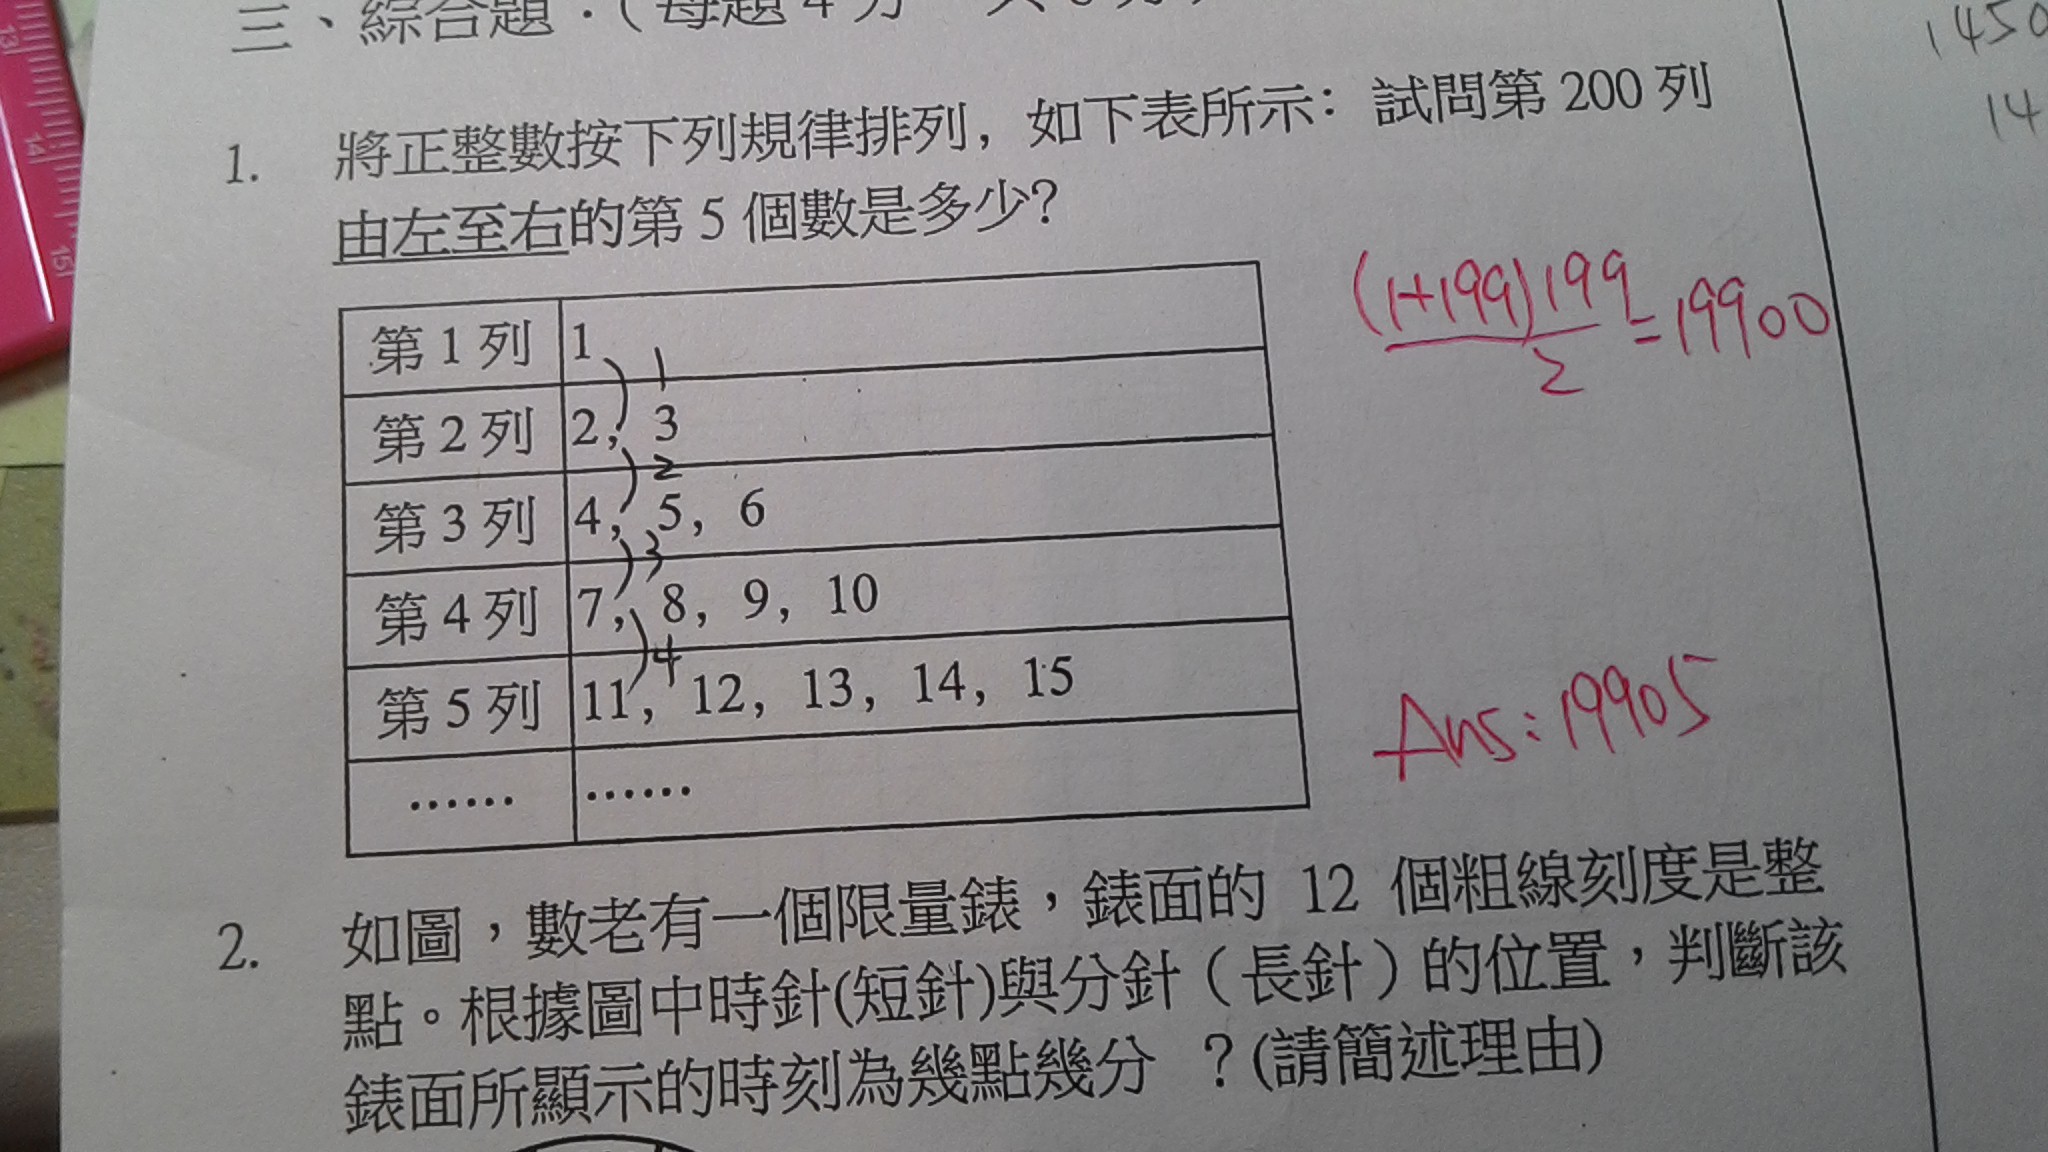 三、綜合題：（每題4分
1. 將正整數按下列規律排列，如下表所示：試問第 200 列
由左至右的第 5 個數是多少?
(1+199)199/2=19900
第 1 列 1
1
第 2 列 2, 3
2
第 3 列 4, 5, 6
3
第 4 列 7, 8, 9, 10
4
第 5 列 11, 12, 13, 14, 15
…… ……
Ans:19905
2. 如圖，數老有一個限量錶，錶面的 12 個粗線刻度是整
點。根據圖中時針(短針)與分針（長針）的位置，判斷該
錶面所顯示的時刻為幾點幾分 ？(請簡述理由)
1450
14
13
14
15